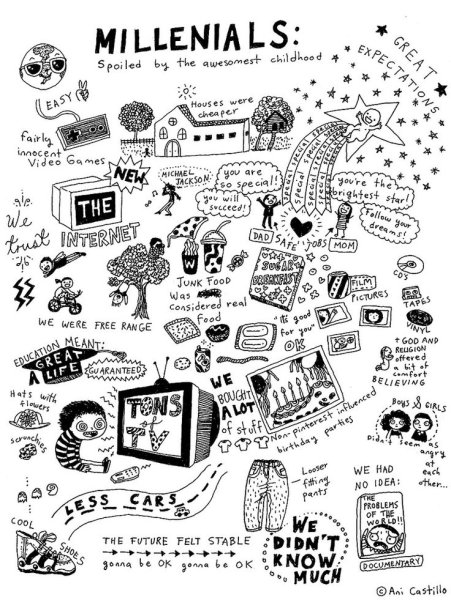 MILLENIALS:
Spoiled by the awesomest childhood
GREAT
EXPECTATIONS
EASY
Houses were
cheaper
fairly
innocent
Video Games
NEW
THE
INTERNET
MICHAEL
JACKSON
you are
so special!!
you will
succeed!!
special special special
special special special
special special special
you're the
brightest star!
Follow your
dreams!
DAD
SAFE
JOBS
MOM
We
trust
W
JUNK FOOD
Was
considered real
food
SUGARY
BREAKFAST
"It's good
for you"
OK
FILM
PICTURES
CDs
TAPES
VINYL
WE WERE FREE RANGE
+ GOD AND
RELIGION
offered
a bit of
comfort
BELIEVING
EDUCATION MEANT:
A GREAT
LIFE
GUARANTEED
Hats with
flowers
scrunchies
TONS
of
TV
WE
BOUGHT
A LOT
of stuff
Non-pinterest influenced
birthday parties
Boys & GIRLS
Didn't seem as
angry
at
each
other...
Looser
fitting
pants
WE HAD
NO IDEA:
THE
PROBLEMS
OF THE
WORLD!!
DOCUMENTARY
LESS CARS
COOL
SHOES
THE FUTURE FELT STABLE
gonna be OK gonna be OK
WE
DIDN'T
KNOW
MUCH
© Ani Castillo